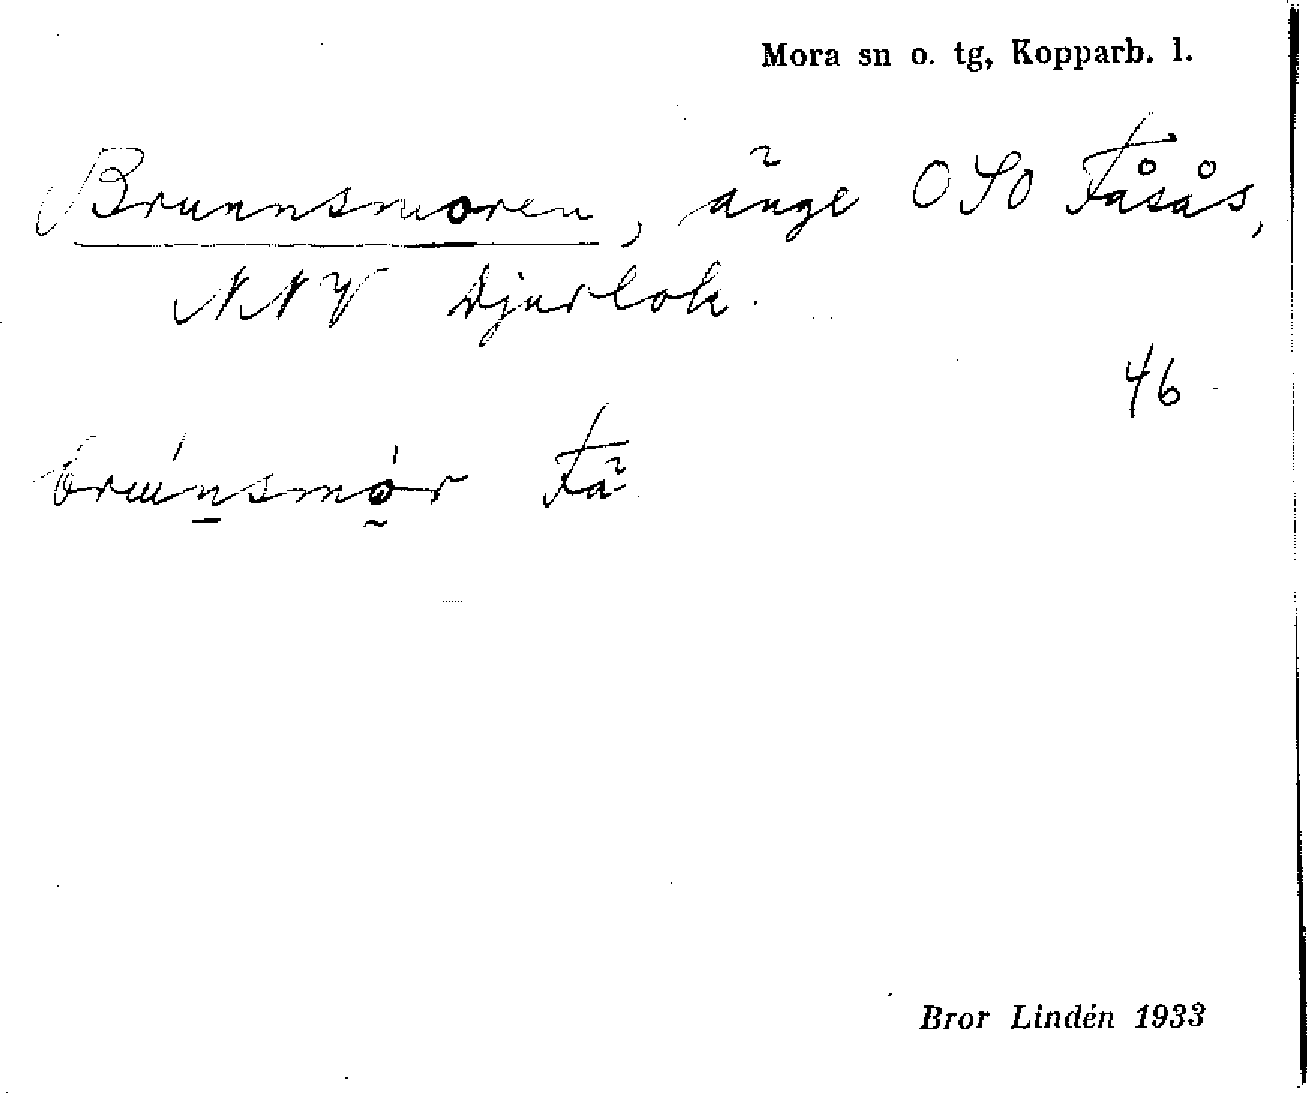 Mora sn o. tg, Kopparb. l.
Brunnsmoren, änge OSO Fåsås,
NNV Djurlok.
46
Fä
Bror Lindén 1933